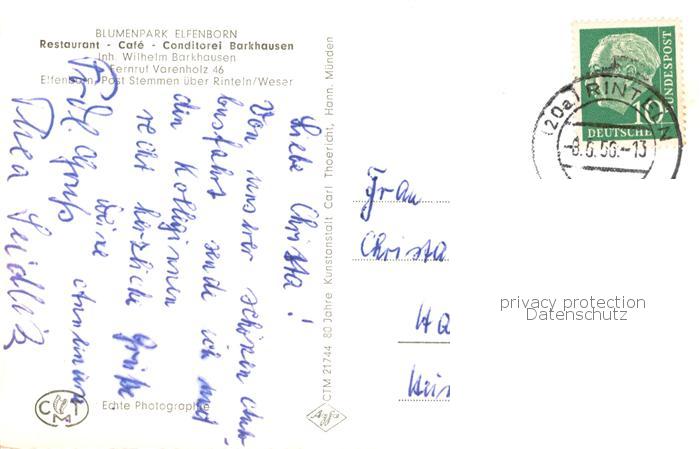 BLUMENPARK ELFENBORN
Restaurant - Café - Conditorei Barkhausen
Inh. Wilhelm Barkhausen
Fernruf Varenholz 46
Elfenborn, Post Stemmen über Rinteln/Weser
Liebe Christa!
Von unserer schönen Aut-
busfahrt sende ich und
die Kolleginnen
recht herzliche Grüße.
Frdl. Gruß
Deine
Thea Seidlitz
CTM
Echte Photographie
CTM 21744 80 Jahre Kunstanstalt Carl Thoericht, Hann. Münden
Agfa
10
DEUTSCHE BUNDESPOST
(20a) RINTELN
-8.6.56.-13
Frau
Christa
Ha
privacy protection
Datenschutz